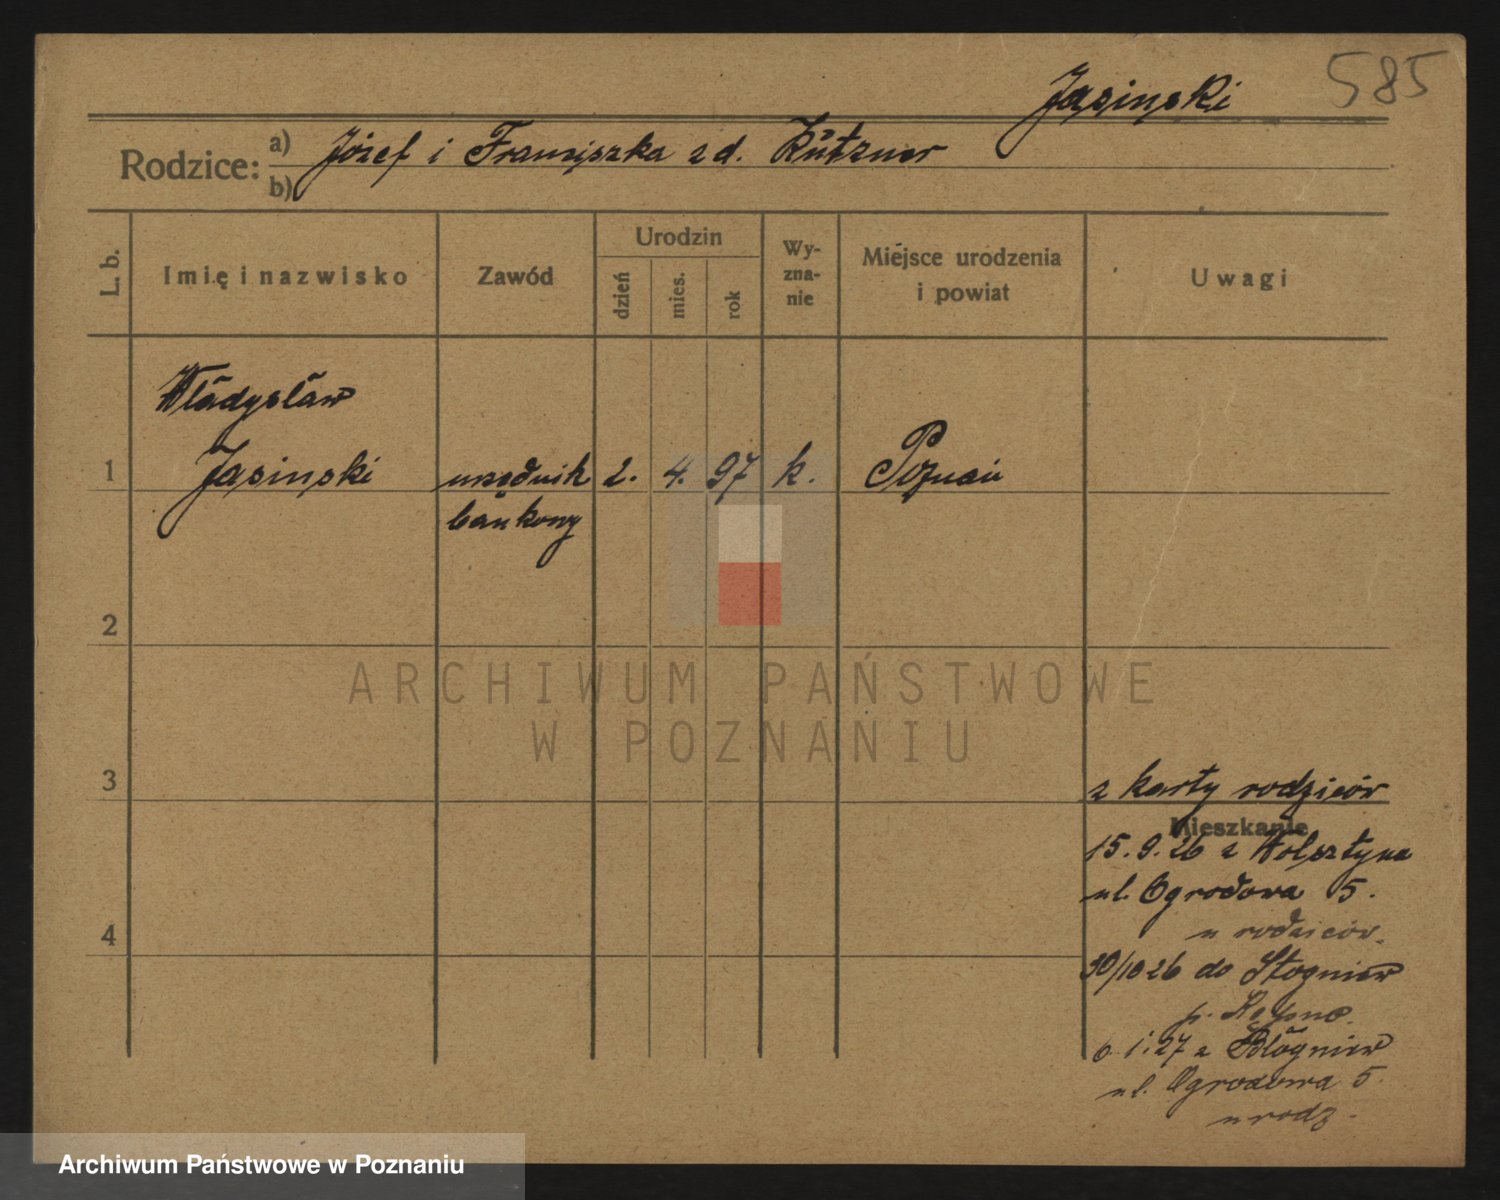 Jasinski 585
Rodzice: a) Józef i Franciszka z d. Kützner
b)
L. b. Imię i nazwisko Zawód Urodzin dzień mies. rok Wy-zna-nie Miejsce urodzenia i powiat Uwagi
Władysław
1 Jasinski urzędnik 2. 4. 97 k. Poznań
bankowy
2
ARCHIWUM PAŃSTWOWE
W POZNANIU
3 z karty rodziców
Mieszkanie
15.9.26 z Wolsztyna
ul. Ogrodowa 5.
u rodziców.
4
30/10 26 do
p. Kępno.
6.1.27 z
ul. Ogrodowa 5.
u rodz.
Archiwum Państwowe w Poznaniu